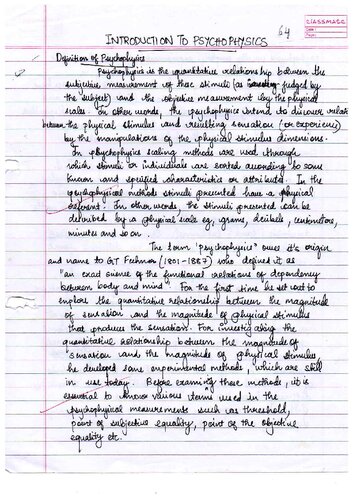 classmate
Date
Page
64
INTRODUCTION TO PSYCHOPHYSICS
Definition of Psychophysics
Psychophysics is the quantitative relationship between the
subjective measurement of these stimuli (as judged by
the subject) and the objective measurement by the physical
scales. In other words, the psychophysics intend to discover relation
between the physical stimulus and resulting sensation (or experience)
by the manipulations of the physical stimulus dimensions.
In psychophysics scaling methods are used through
which stimuli or individuals are sorted according to some
known and specified characteristics or attributes. In the
psychophysical methods stimuli presented have a physical
referent. In other words, the stimuli presented can be
described by a physical scale eg, grams, decibels, centimeters,
minutes and so on.
The term 'psychophysics' owes it's origin
and name to GT Fechner (1801-1887) who defined it as
"an exact science of the functional relations of dependency
between body and mind" For the first time he set out to
explore the quantitative relationship between the magnitude
of sensation and the magnitude of physical stimulus
that produces the sensation. For investigating the
quantitative relationship between the magnitude of
sensation and the magnitude of physical stimulus,
he developed some experimental methods, which are still
in use today. Before examining these methods, it is
essential to know various terms used in the
psychophysical measurements such as threshold,
point of subjective equality, point of the objective
equality etc.